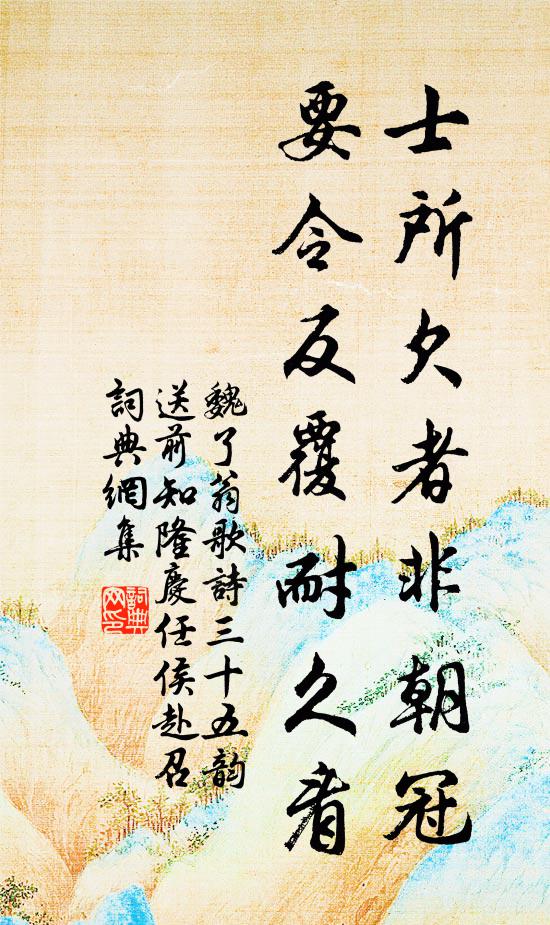 士所欠者非朝冠
要令反覆耐久看
魏了翁歌詩三十五韵
送前知隆慶任侯赴召
詞典網集
詞典網印